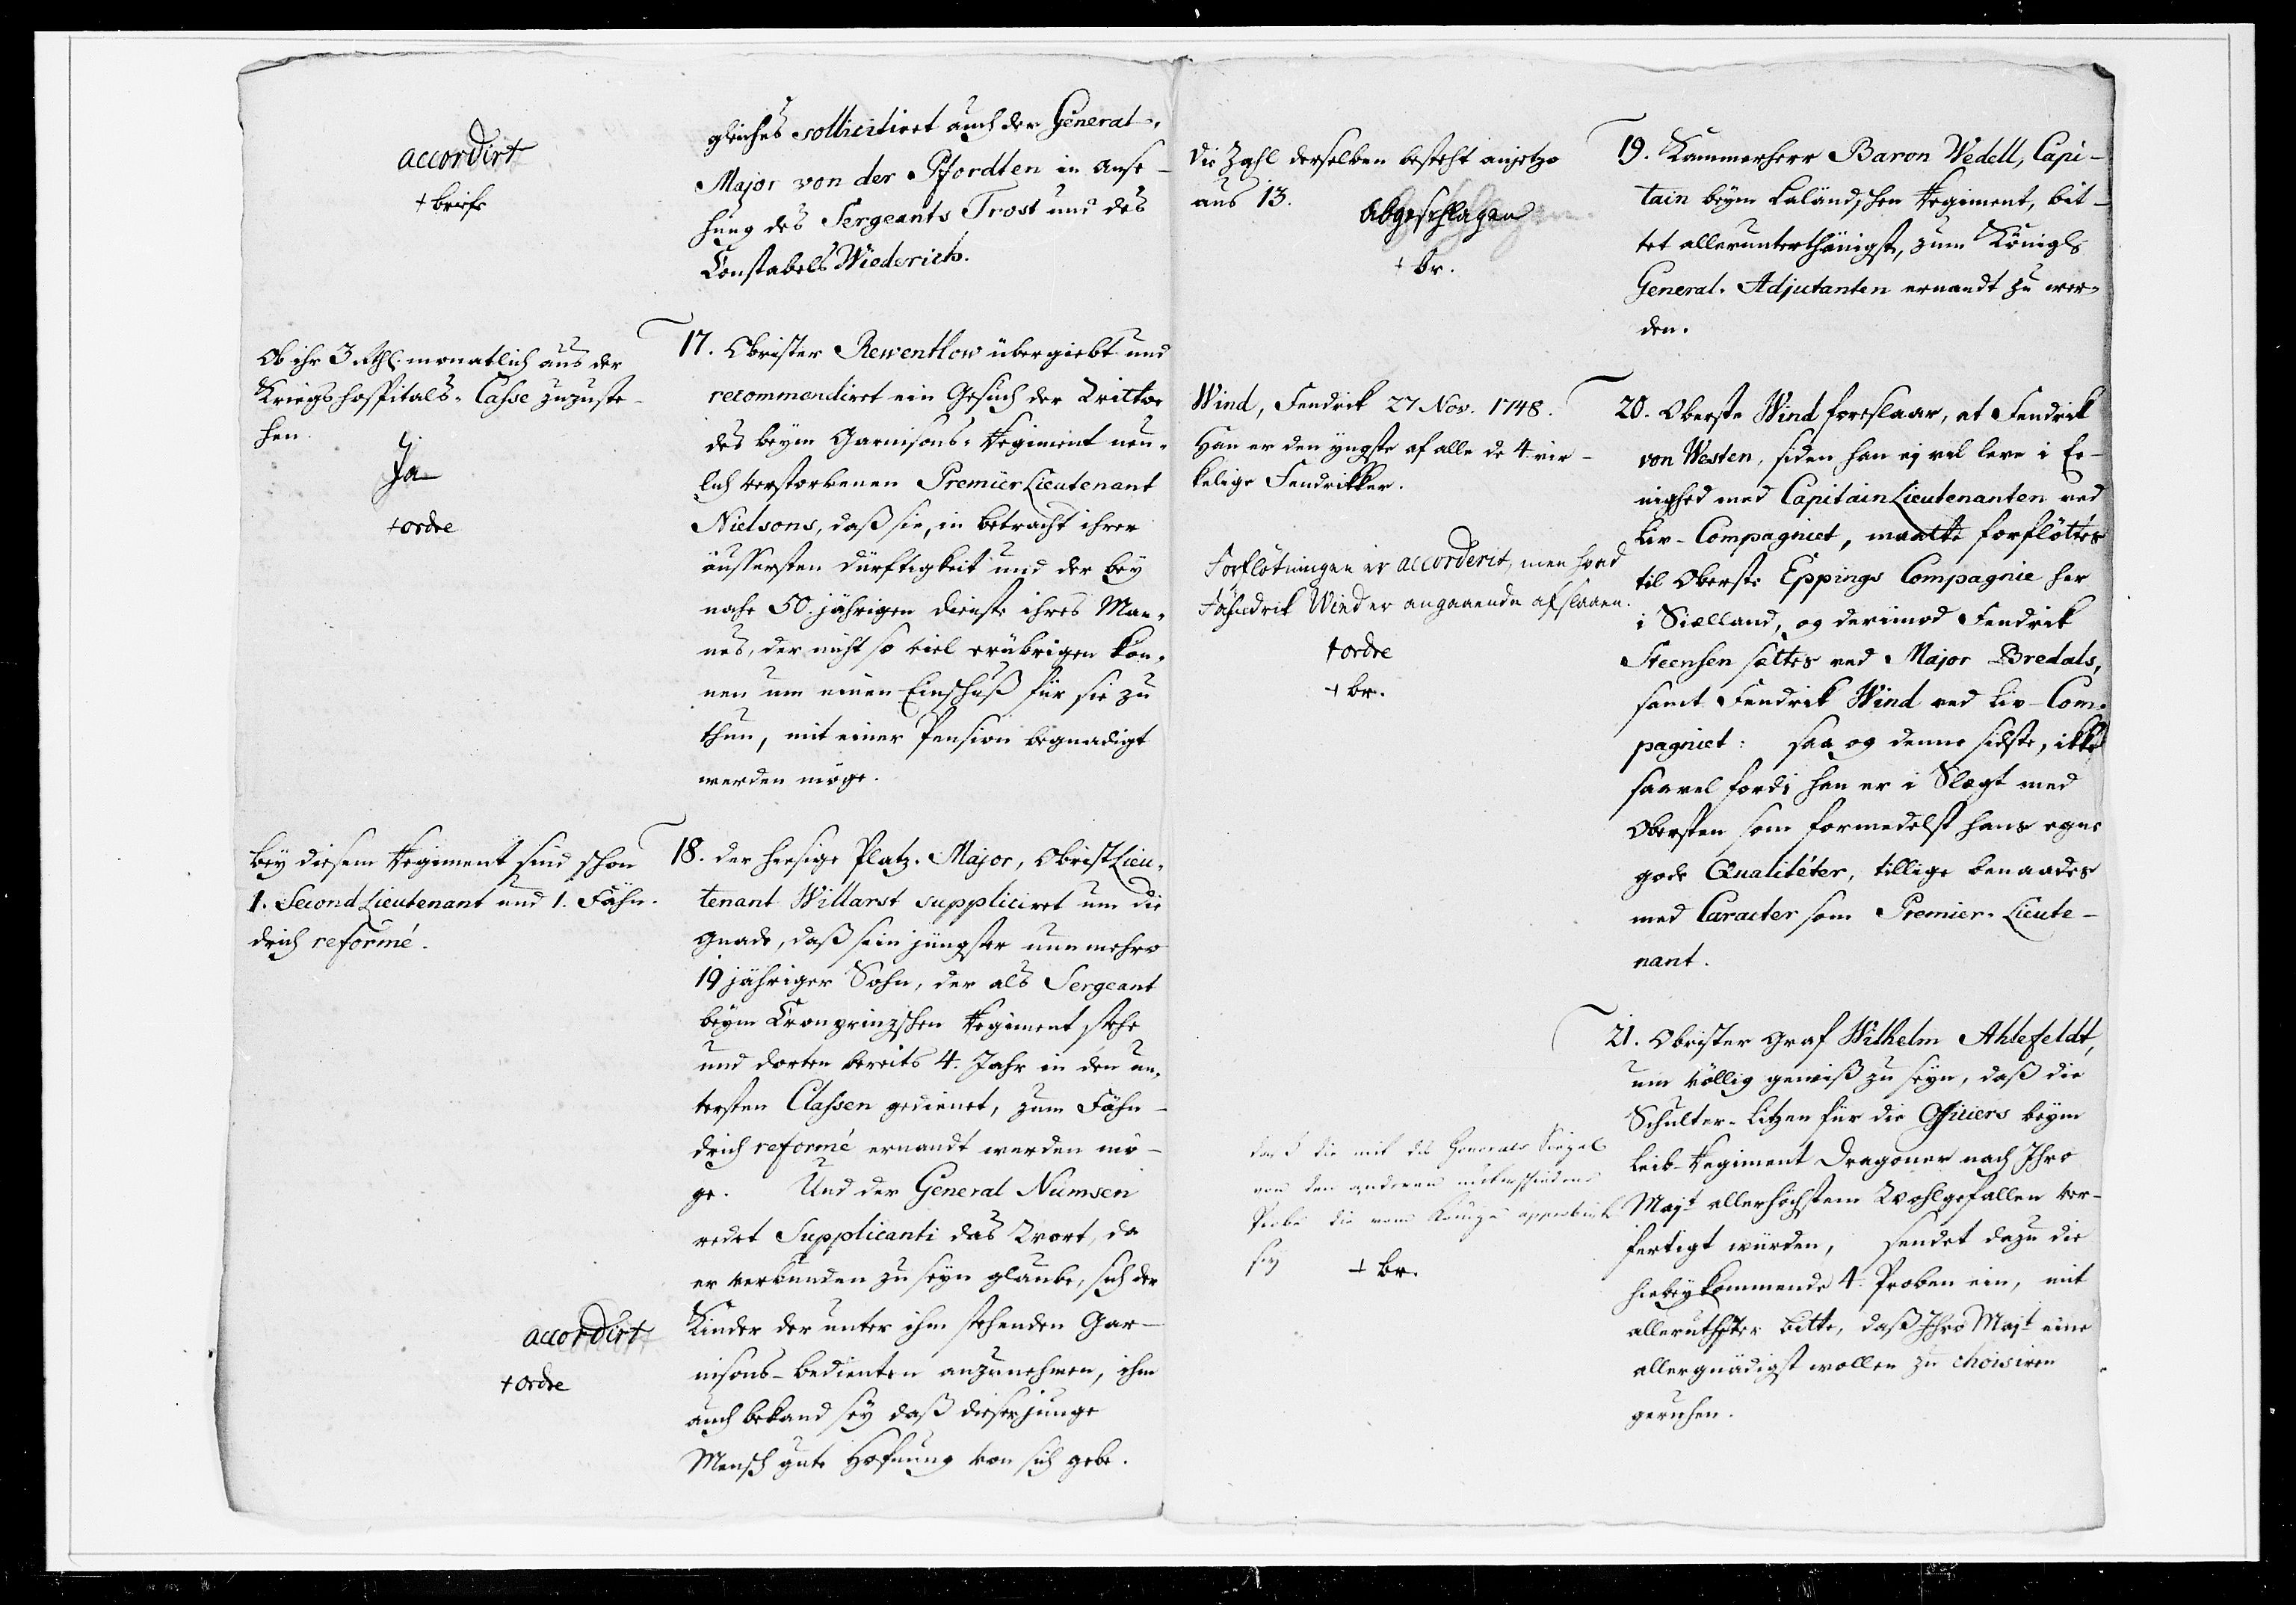 accordirt
+ briefe
gleiches sollicitiret auch der General-
Major von der Pfordten in Anse-
hung des Sergeants Trost und des
Constabels Wiederich.
Ob ihr 3 Rthl. monatlich aus der
Kriegshospitals-Casse zuzuste-
hen.
Ja
+ ordre
17. Obrister Rewentlow übergiebt und
recommendiret ein Gesuch der Wittwe
des beym Garnisons-Regiment neu-
lich verstorbenen Premier Lieutenant
Nielsons, daß sie, in Betracht ihrer
äussersten Dürftigkeit und der bey
nahe 50. jährigen Dienste ihres Man-
nes, der nicht so viel erübrigen kön-
nen um einen Einschuß für sie zu
thun, mit einer Pension begnadigt
werden möge.
bey diesem Regiment sind schon
1. Second Lieutenant und 1. Fähn-
drich reformé.
18. der hiesige Platz-Major, Obrist Lieu-
tenant Willarst suppliciret um die
Gnade, daß sein jüngster nunmehro
19 jähriger Sohn, der als Sergeant
beym Cronprinzschen Regiment stehe
und dorten bereits 4. Jahr in den un-
tersten Classen gedienet, zum Fähn-
drich reformé ernandt werden mö-
ge. Und der General Numsen
redet Supplicanti das Wort, da
er verbunden zu seyn glaube, sich der
Kinder der unter ihm stehenden Gar-
nisons-bedienten anzunehmen, ihm
auch bekand sey daß dieser junge
Mensch gute Hofnung von sich gebe.
accordirt
+ ordre
die Zahl derselben besteht anjetzo
aus 13.
Abgeschlagen
+ br.
19. Kammerherr Baron Wedell, Capi-
tain beym Laländschen Regiment, bit-
tet allerunterthänigst, zum Königl.
General-Adjutanten ernandt zu wer-
den.
Wind, Fendrik 27 Nov. 1748.
Han er den yngste af alle de 4 vir-
kelige Fendrikker.
Forflötningen er accorderit, men hvad
Fähndrik Wind er angaaende afslaaen.
+ ordre
+ br.
20. Oberste Wind foreslaar, at Fendrik
von Westen, siden han ej vil leve i Ee-
nighed med Capitain Lieutenanten ved
Liv-Compagniet, maatte forflöttes
til Oberste Eppings Compagnie her
i Siælland, og derimod Fendrik
Steensen sættes ved Major Bredals,
samt Fendrik Wind ved Liv-Com-
pagniet: saa og denne sidste, ikke
saavel fordi han er i Slægt med
Obersten som formedelst hans egne
gode Qualitéter, tillige benaades
med Caracter som Premier-Lieute-
nant.
daß die mit des Generals Siegel
von den anderen unterschiedene
Probe die vom Könige approbirte
sey
+ br.
21. Obrister Graf Wilhelm Ahlefeldt,
um völlig gewiß zu seyn, daß die
Schulter-Litzen für die Officiers beym
Leib-Regiment Dragoner nach Ihro
Majt allerhöchstem Wohlgefallen ver-
fertigt würden, sendet dazu die
hiebeykommende 4. Proben ein, mit
alleruthster bitte, daß Ihro Majt eine
allergnädigst wollen zu choisiren
geruhen.